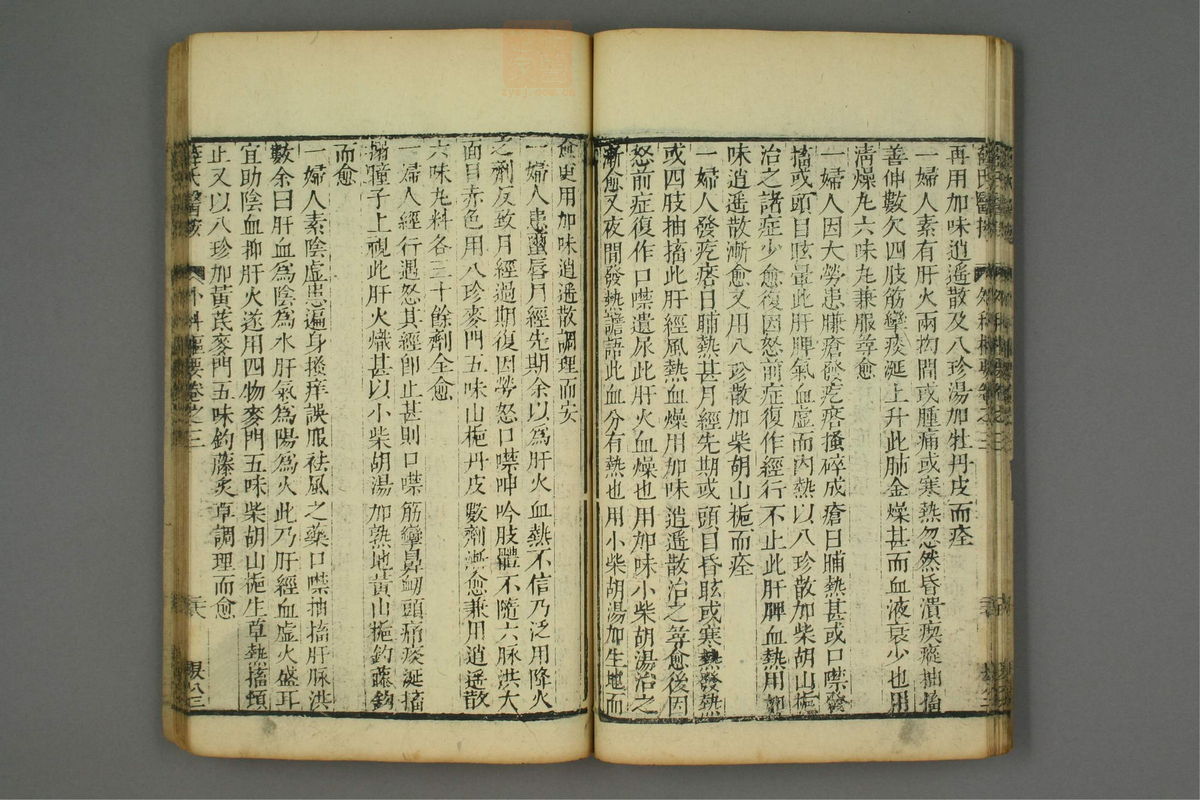 再用加味逍遥散及八珍湯加牡丹皮而痊
一婦人素有肝火兩拗間或腫痛或寒熱忽然昏潰瘈瘲抽搐
善伸數欠四肢筋攣痰涎上升此肺金燥甚而血液衰少也用
清燥丸六味丸兼服尋愈
一婦人因大勞患臁瘡發疙瘩搔碎成瘡日晡熱甚或口噤發
搐或頭目眩暈此肝脾氣血虛而内熱以八珍散加柴胡山梔
治之諸症少愈復因怒前症復作經行不止此肝脾血熱用加
味逍遥散漸愈又用八珍散加柴胡山梔而痊
一婦人發疙瘩日晡熱甚月經先期或頭目昏眩或寒熱發熱
或四肢抽搐此肝經風熱血燥用加味逍遥散治之尋愈後因
怒前症復作口噤遺尿此肝火血燥也用加味小柴胡湯治之
漸愈又夜間發熱譫語此血分有熱也用小柴胡湯加生地而
愈更用加味逍遥散調理而安
一婦人患繭唇月經先期余以爲肝火血熱不信乃泛用降火
之劑反致月經過期復因勞怒口噤呻吟肢體不隨六脉洪大
面目赤色用八珍麥門五味山梔丹皮數劑漸愈兼用逍遥散
六味丸料各三十餘劑全愈
一婦人經行遇怒其經卽止甚則口噤筋攣鼻衂頭痛痰涎搐
搦瞳子上視此肝火熾甚以小柴胡湯加熟地黄山梔鈎藤鈎
而愈
一婦人素陰虛患遍身搔痒誤服祛風之藥口噤抽搐肝脉洪
數余曰肝血爲陰爲水肝氣爲陽爲火此乃肝經血虛火盛耳
宜助陰血抑肝火遂用四物麥門五味柴胡山梔生草熱搐頓
止又以八珍加黄芪麥門五味鈎藤炙草調理而愈
薛氏醫按 外科樞要卷之三